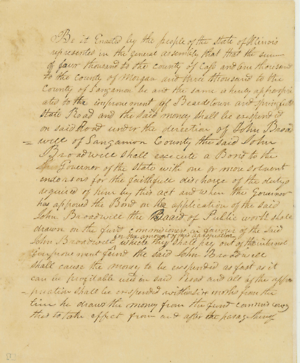 Be it Enacted by the people of the State of Illinois
represented in the general assembly that that the sum
of four thousand to the county of Cass and one thousand
to the county of Morgan and three thousand to the
County of Sangamon be and the same is hereby appropri
ated to the improvement of Beardstown and Springfield
State Road and the said money shall be expended
on said Road under the direction of John Broad
well of Sangamon County the said John
Broadwell shall execute a Bond to the
Governor of the State with one or more
endorsers for the faithful discharge of the duties
required of him by this act and when the Governor
has approved the Bond on the application of the said
John Broadwell the Board of Public works shall
drawn on the fund commissioners in favour of the said
John Broadwell which they shall pay out of the internal
Improvement fund the said John Broadwell
shall cause the money to be expended as fast as it
can be profitable used in said Road and all of the appro
priation shall be expended within months from the
time he draws the money from the fund commissioners
this to take effect from and after its passage